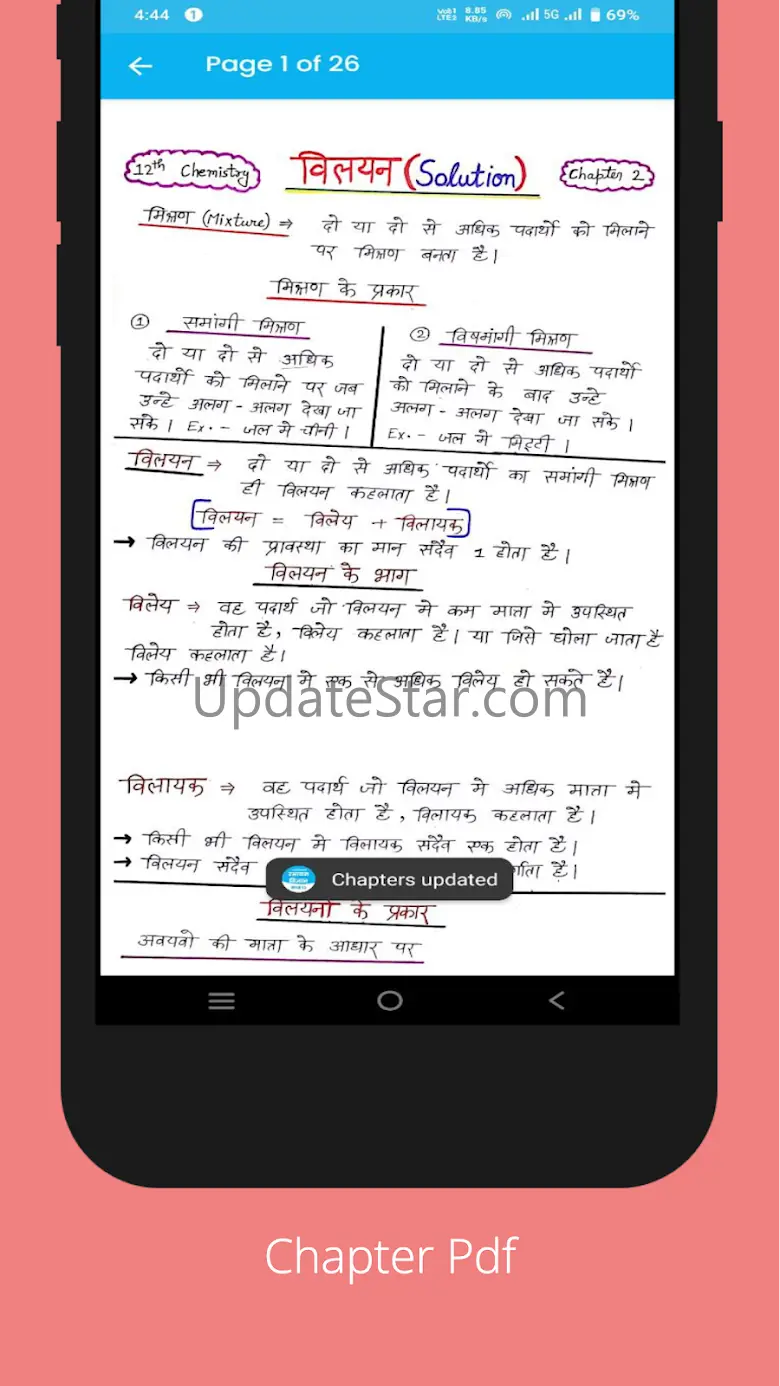 4:44 1 Vo1 LTE2 8.85 KB/s 5G 69%
Page 1 of 26
12th Chemistry विलयन (Solution) Chapter 2
मिश्रण (Mixture) ⇒ दो या दो से अधिक पदार्थो को मिलाने
पर मिश्रण बनता है।
मिश्रण के प्रकार
① समांगी मिश्रण
दो या दो से अधिक
पदार्थो को मिलाने पर जब
उन्हे अलग - अलग देखा जा
सके। Ex. - जल मे चीनी।
② विषमांगी मिश्रण
दो या दो से अधिक पदार्थो
को मिलाने के बाद उन्हे
अलग - अलग देखा जा सके।
Ex. - जल मे मिट्टी।
विलयन ⇒ दो या दो से अधिक पदार्थो का समांगी मिश्रण
ही विलयन कहलाता है।
[विलयन = विलेय + विलायक]
→ विलयन की प्रावस्था का मान सदैव 1 होता है।
विलयन के भाग
विलेय ⇒ वह पदार्थ जो विलयन मे कम मात्रा मे उपस्थित
होता है, विलेय कहलाता है। या जिसे घोला जाता है
विलेय कहलाता है।
→ किसी भी विलयन मे एक से अधिक विलेय हो सकते है।
UpdateStar.com
विलायक ⇒ वह पदार्थ जो विलयन मे अधिक मात्रा मे
उपस्थित होता है, विलायक कहलाता है।
→ किसी भी विलयन मे विलायक सदैव एक होता है।
→ विलयन सदैव है।
Chapters updated
विलयनो के प्रकार
अवयवो की मात्रा के आधार पर
Chapter Pdf